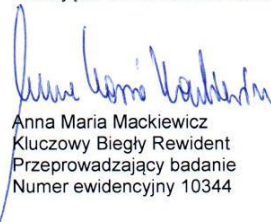 Anna Maria Mackiewicz
Kluczowy Biegły Rewident
Przeprowadzający badanie
Numer ewidencyjny 10344